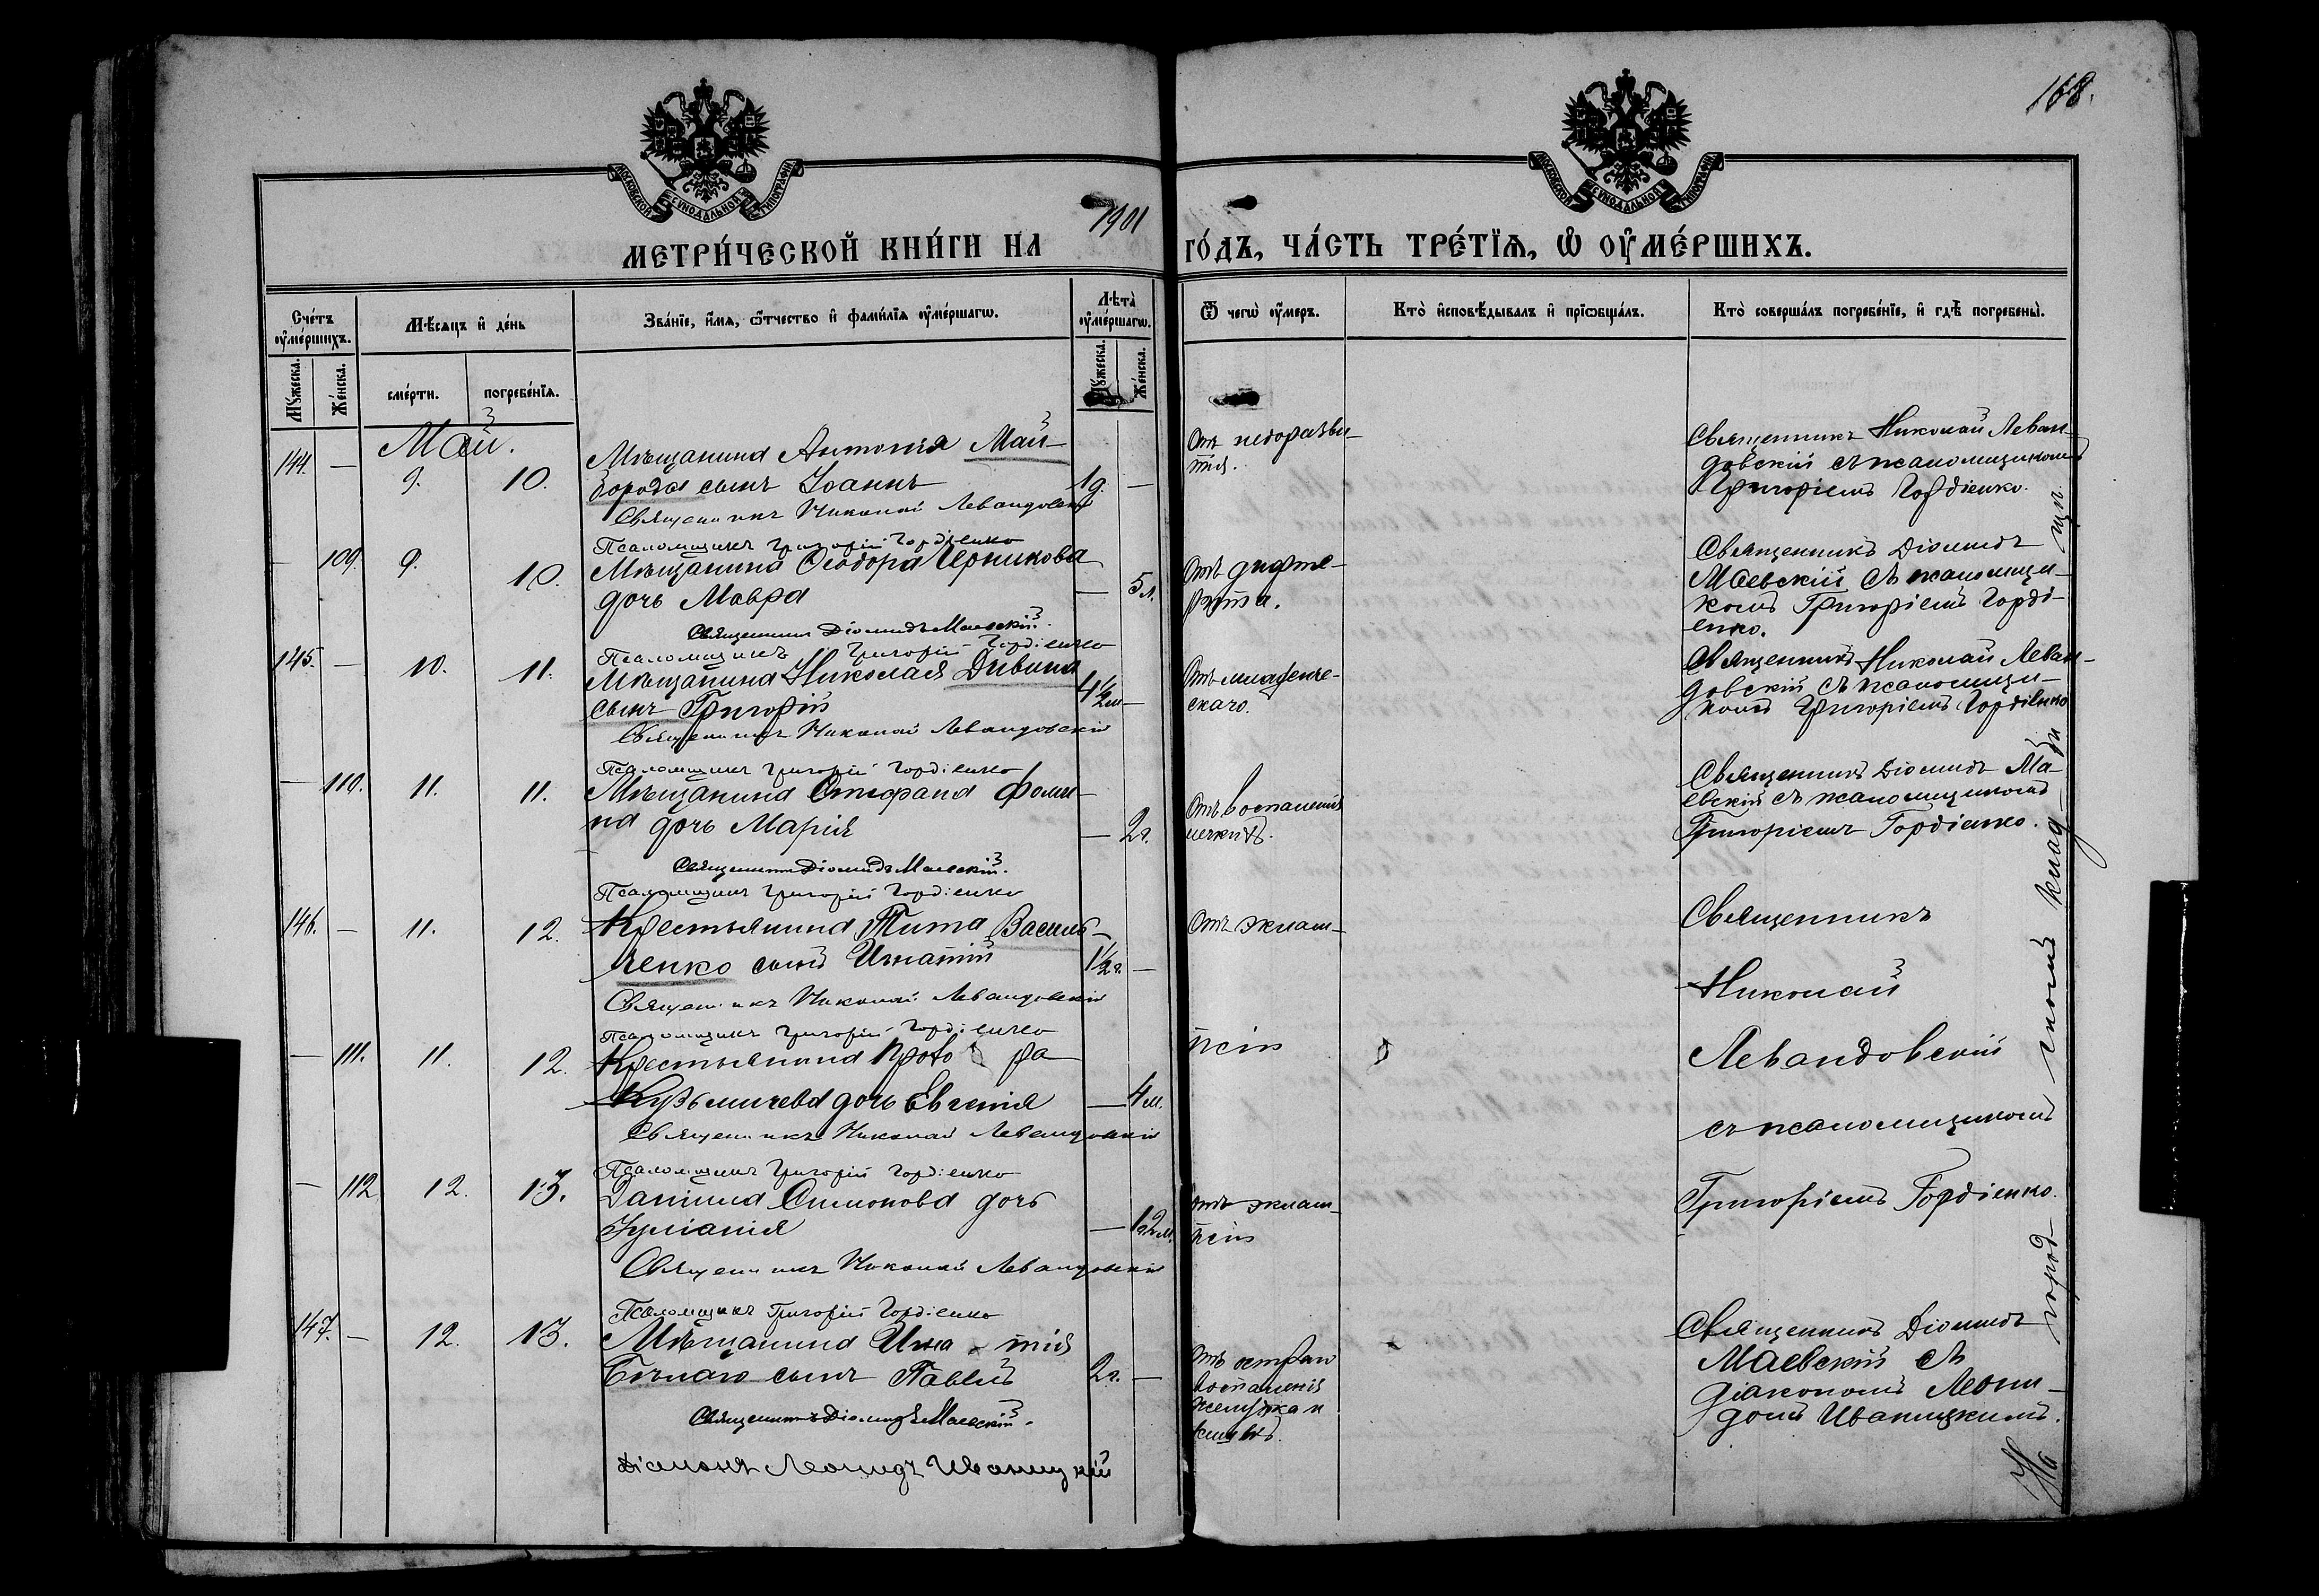 168.
МОСКОВСКОЙ СѴНОДАЛЬНОЙ ТИПОГРАФІИ
МОСКОВСКОЙ СѴНОДАЛЬНОЙ ТИПОГРАФІИ
МЕТРИ́ЧЕСКОЙ КНИ́ГИ НА 1901 ГО́ДЪ, ЧА́СТЬ ТРЕ́ТЇѦ, Ѡ҆ ОУ҆МЕ́РШИХЪ.
Сче́тъ оу҆ме́ршихъ.
Мꙋ́жеска.
Же́нска.
Мѣ́сѧцъ и҆ де́нь
сме́рти.
погребе́нїѧ.
Зва́нїе, и҆́мѧ, ѻ҆́тчество и҆ фами́лїѧ оу҆ме́ршагѡ.
Лѣта̀ оу҆ме́ршагѡ.
Мꙋ́жеска.
Же́нска.
Ѿ чегѡ̀ оу҆́меръ.
Кто̀ и҆сповѣ́дывалъ и҆ прїѡбща́лъ.
Кто̀ соверша́лъ погребе́нїе, и҆ гдѣ̀ погребены̀.
Май.
144. — 9. 10.
Мѣщанина Антонія Май-
борода сынъ Іоаннъ 1 д. —
Священникъ Николай Левандовскій
Псаломщикъ Григорій Гордіенко
Отъ недоразви-
тія.
Священникъ Николай Леван-
довскій съ псаломщикомъ
Григоріемъ Гордіенко.
— 109. 9. 10.
Мѣщанина Ѳеодора Черникова
дочь Мавра — 5 л.
Священникъ Діомидъ Маевскій.
Псаломщикъ Григорій Гордіенко
Отъ дифте-
рита.
Священникъ Діомидъ
Маевскій съ псаломщи-
комъ Григоріемъ Горді-
енко.
145. — 10. 11.
Мѣщанина Николая Дивина
сынъ Григорій 4½ м. —
Священникъ Николай Левандовскій
Псаломщикъ Григорій Гордіенко
Отъ младенче-
скаго.
Священникъ Николай Леван-
довскій съ псаломщи-
комъ Григоріемъ Гордіенко
— 110. 11. 11.
Мѣщанина Стефана Фоми-
на дочь Марія — 2 г.
Священникъ Діомидъ Маевскій.
Псаломщикъ Григорій Гордіенко
Отъ воспаленія
легкихъ.
Священникъ Діомидъ Ма-
евскій съ псаломщикомъ
Григоріемъ Гордіенко.
146. — 11. 12.
Крестьянина Тита Василь-
ченко сынъ Игнатій 1½ г. —
Священникъ Николай Левандовскій
Псаломщикъ Григорій Гордіенко
Отъ эклам-
псіи
— 111. 11. 12.
Крестьянина
Кузьмичева дочь Евгенія — 4 м.
Священникъ Николай Левандовскій
Псаломщикъ Григорій Гордіенко
Священникъ
Николай
Левандовскій
съ псаломщикомъ
Григоріемъ Гордіенко.
— 112. 12. 13.
Симонова дочь
Іуліанія — 12 м.
Священникъ Николай Левандовскій
Псаломщикъ Григорій Гордіенко
Отъ эклам-
псіи
147. — 12. 13.
Мѣщанина Игна тія
Бѣлаго сынъ Павелъ 2 г. —
Священникъ Діомидъ Маевскій.
Діаконъ Леонидъ Иваницкій
Отъ остраго
воспаленія
желудка и
кишекъ.
Священникъ Діомидъ
Маевскій съ
діакономъ Леони-
домъ Иваницкимъ.
На город- скомъ клад- би щѣ.